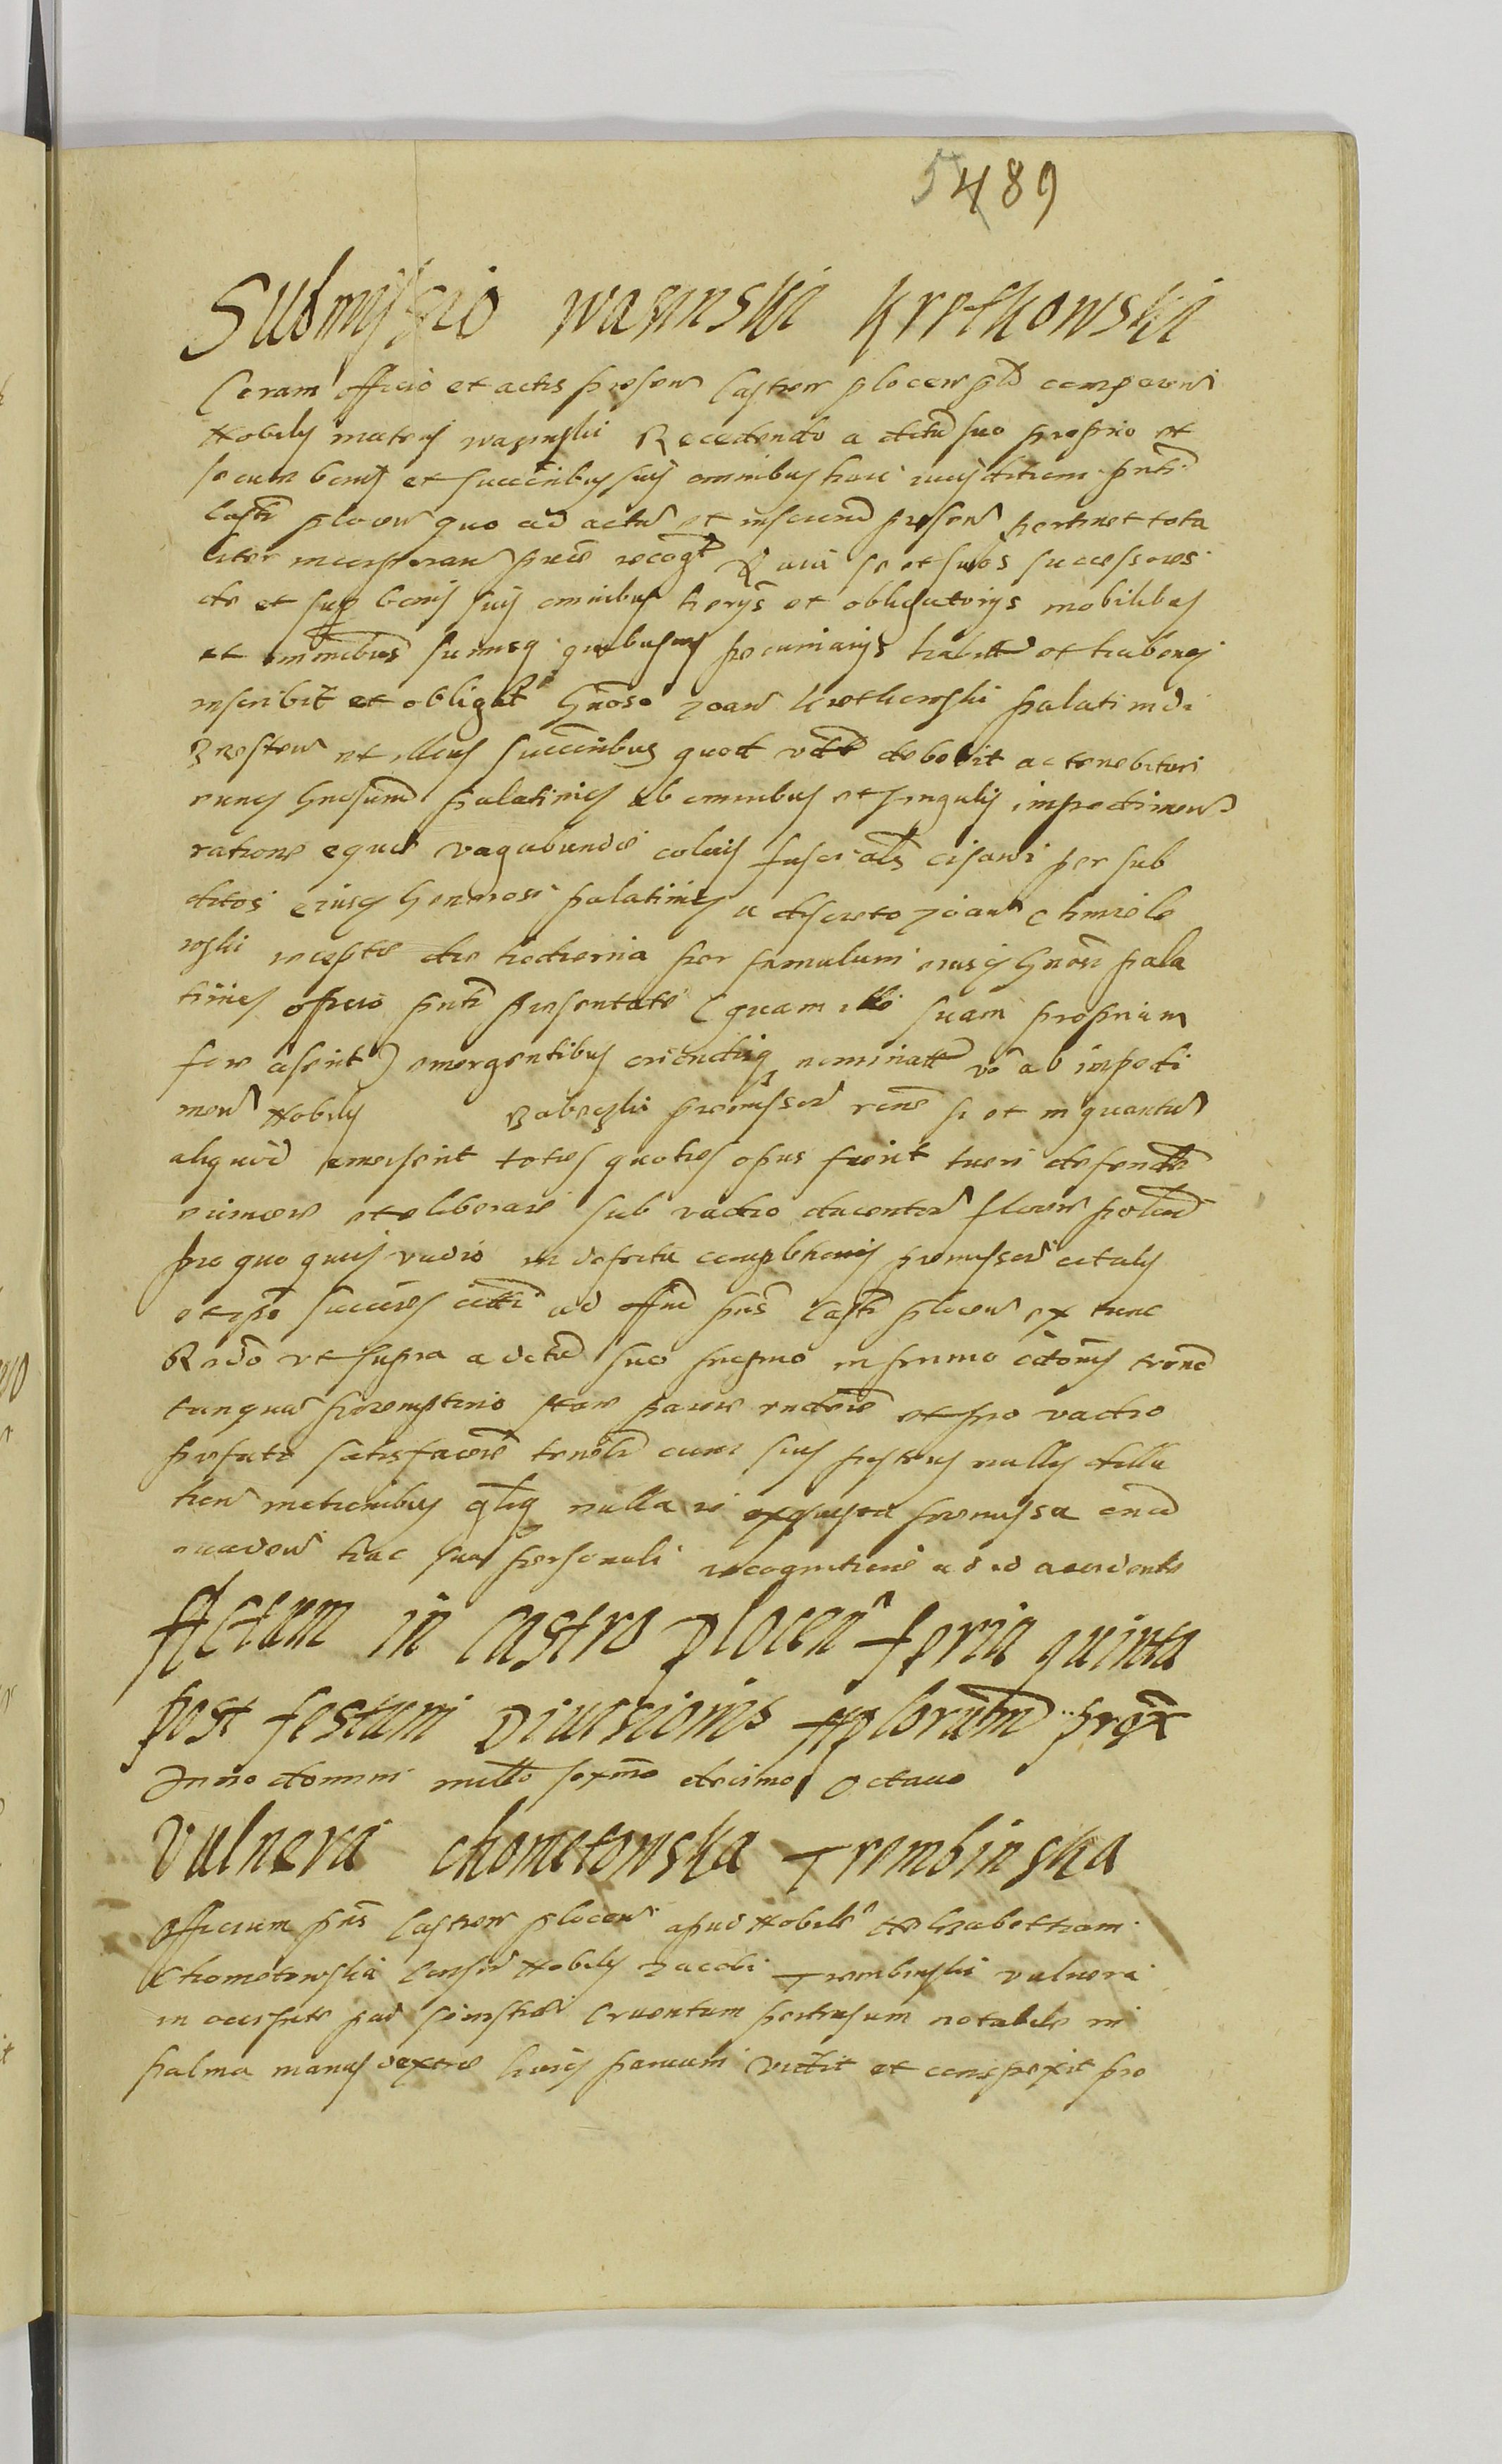 5489
Submissio wasinski kretkowski
Coram officio et actis presen Castren plocen psl comparens
Nobilis mateus wasinski Recedendo a dctu suo proprio et
se cum bonis et succribus suis omnibus huic iurisdictioni pnti
Castri plocen quo ad actu et inscrind presen pertinet tota
liter incorporan pnce recogt Quia se et suos successores
de et sup bonis suis omnibus herijs et obligatorijs mobilibus
et immobilibus sumisq quibusuis pecuniarijs habitt et habendis
inscribit et obligat Gnoso Joan kretkowski palatinidi
Bresten et illius succribus quod vtt debebit ac tenebitur
eund Gnosum palatinid ab omnibus et singulis impedimen
ratione eque vagabunde coloris fusci als cisawi per sub
ditos eiusd Generosi palatinid a discreto Joan Chmiele
wski recepte die hodierna per famulum eiusd Gnosi pala
tinid officio pnti presentate (quam ille suam propriam
fore aserit) emergentibus oriendisq nominatt vo ab impedi
men Nobilis premissor rone si et in quantu
aliquid emerserit toties quoties opus fuerit tueri defende
eximere et liberare sub vadio ducentor floren polcal
pro quo quid vadio in defectu completionis premissor citatus
et ipse succres citti ad offm pns Castr plocen ex tunc
Rndo vt supra a dctu suo proprio in primo citonis trmno
tanquam peremptorio stare parere rndere et pro vadio
prefato satisfacere tenebr cum suis posteris nullis dilla
tion motionibus qslq nulla re exquisita premissa
euaden hac sua personali recognitione ad id accedente
Actum in Castro plocen feria quinta
post festum Diuisionis Applorum prox
Anno domini millo sexmo decimo Octauo
Vulnera chometowska Trembinska
Officium pns Castren plocen apud Nobile Helizabetham
Chometowska Consor Nobilis Jacobi Trembinski vulnera
in occipite pad sinistra cruentum pertusum notabile in
palma manus dextre liuid paruum vidit et conspexit pro